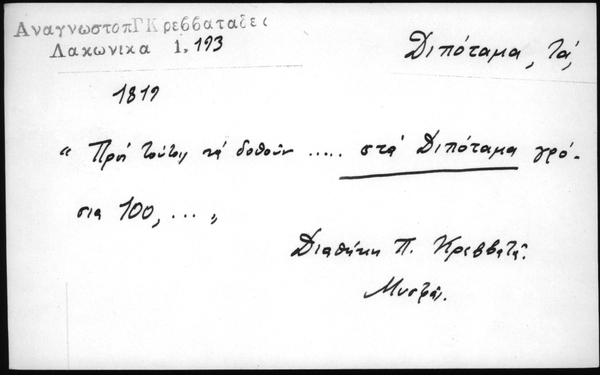 ΑναγνωστοπΓΚρεββαταδες
Λακωνικα 1,193
Διπόταμα, τά,
1819
" Πρός τούτοις νά δοθοῦν ..... στά Διπόταμα γρό-
σια 100, ... "
Διαθήκη Π. Κρεββατᾶ.
Μυστρᾶς.